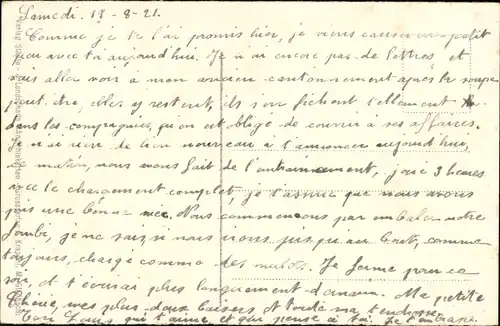 Samedi. 17-8-21.
Comme je te l'ai promis hier, je viens causer un petit
peu avec toi aujourd'hui. Je n'ai encore pas de lettres, et
vais aller voir à mon ancien cantonnement après la soupe
peut être, elles y restent, ils s'en fichent tellement
dans les compagnies, qu'on est obligé de courir à ses affaires.
Je n'ai rien de bien nouveau à t'annoncer aujourd'hui,
ce matin, nous avons fait de l'entrainement, 3 heures
avec le chargement complet, je t'assure que nous avons
pris une bonne suée. Nous commençons par emballer notre
fourbi, je ne sais si nous irons jusqu'au bout, comme
toujours, chargé comme des mulets. Je ferme pour ce
soir, et t'écrirai plus longuement demain. Ma petite
Chérie, mes plus doux baisers et toute ma tendresse.
Ton Louis qui t'aime et qui pense à toi. Je t'embrasse